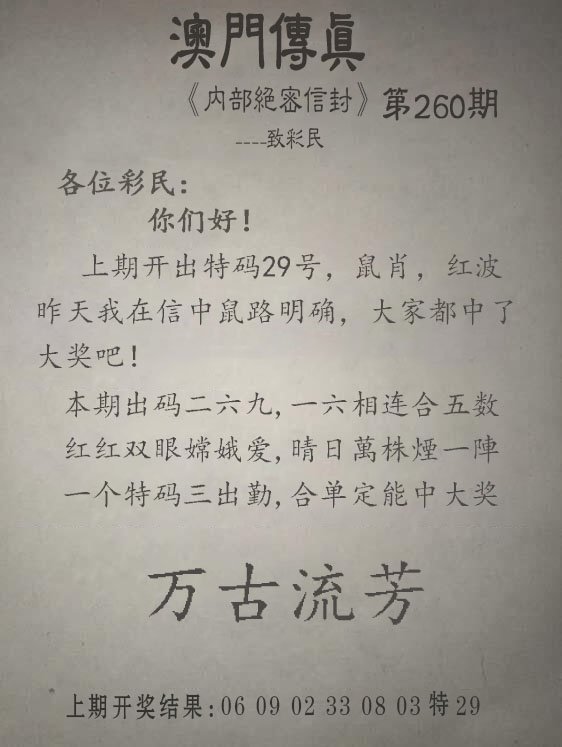 澳門傳眞
《内部絕密信封》第260期
----致彩民
各位彩民：
你们好！
上期开出特码29号，鼠肖，红波
昨天我在信中鼠路明确，大家都中了
大奖吧！
本期出码二六九,一六相连合五数
红红双眼嫦娥爱,晴日萬株煙一陣
一个特码三出勤,合单定能中大奖
万古流芳
上期开奖结果:06 09 02 33 08 03特29